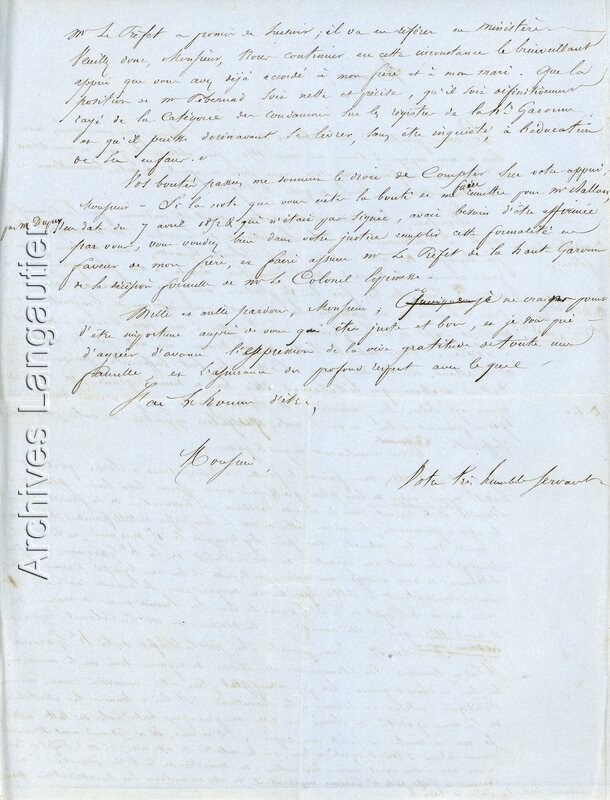 Mr Le Préfet a promis de sursoir ; il va en référer au ministère.
Veuillez donc, Monsieur, nous continuer en cette circonstance le bienveillant
appui que vous avez déjà accordé à mon frère et à mon mari. Que la
position de Mr soit nette et précise, qu'il soit définitivement
rayé de la Catégorie des condamnés sur les registres de la Hte Garonne
et qu'il puisse dorénavant se livrer, sans être inquiété, à l'éducation
de ses enfans.
Vos bontés passées me donnent le droit de Compter sur votre appui,
Monsieur - Si la note que vous eûtes la bonté de me faire remettre pour Mr
par Mr Dupuy en date du 7 avril 1852 & qui n'était pas signée, avait besoin d'être
par vous, vous voudrez bien dans votre justice remplir cette formalité en
faveur de mon frère, et faire assurer Mr Le Préfet de la haute Garonne
de la décision formelle de Mr Le Colonel Espinasse -
Mille et mille pardons, Monsieur ; je ne crains pas
d'être importune auprès de vous qui êtes juste et bon, et je vous prie
d'agréer d'avance l'expression de la vive gratitude de toute une
famille, et l'assurance du profond respect avec lequel
J'ai l'honneur d'être,
Monsieur,
Votre très humble servante
Archives Langautier